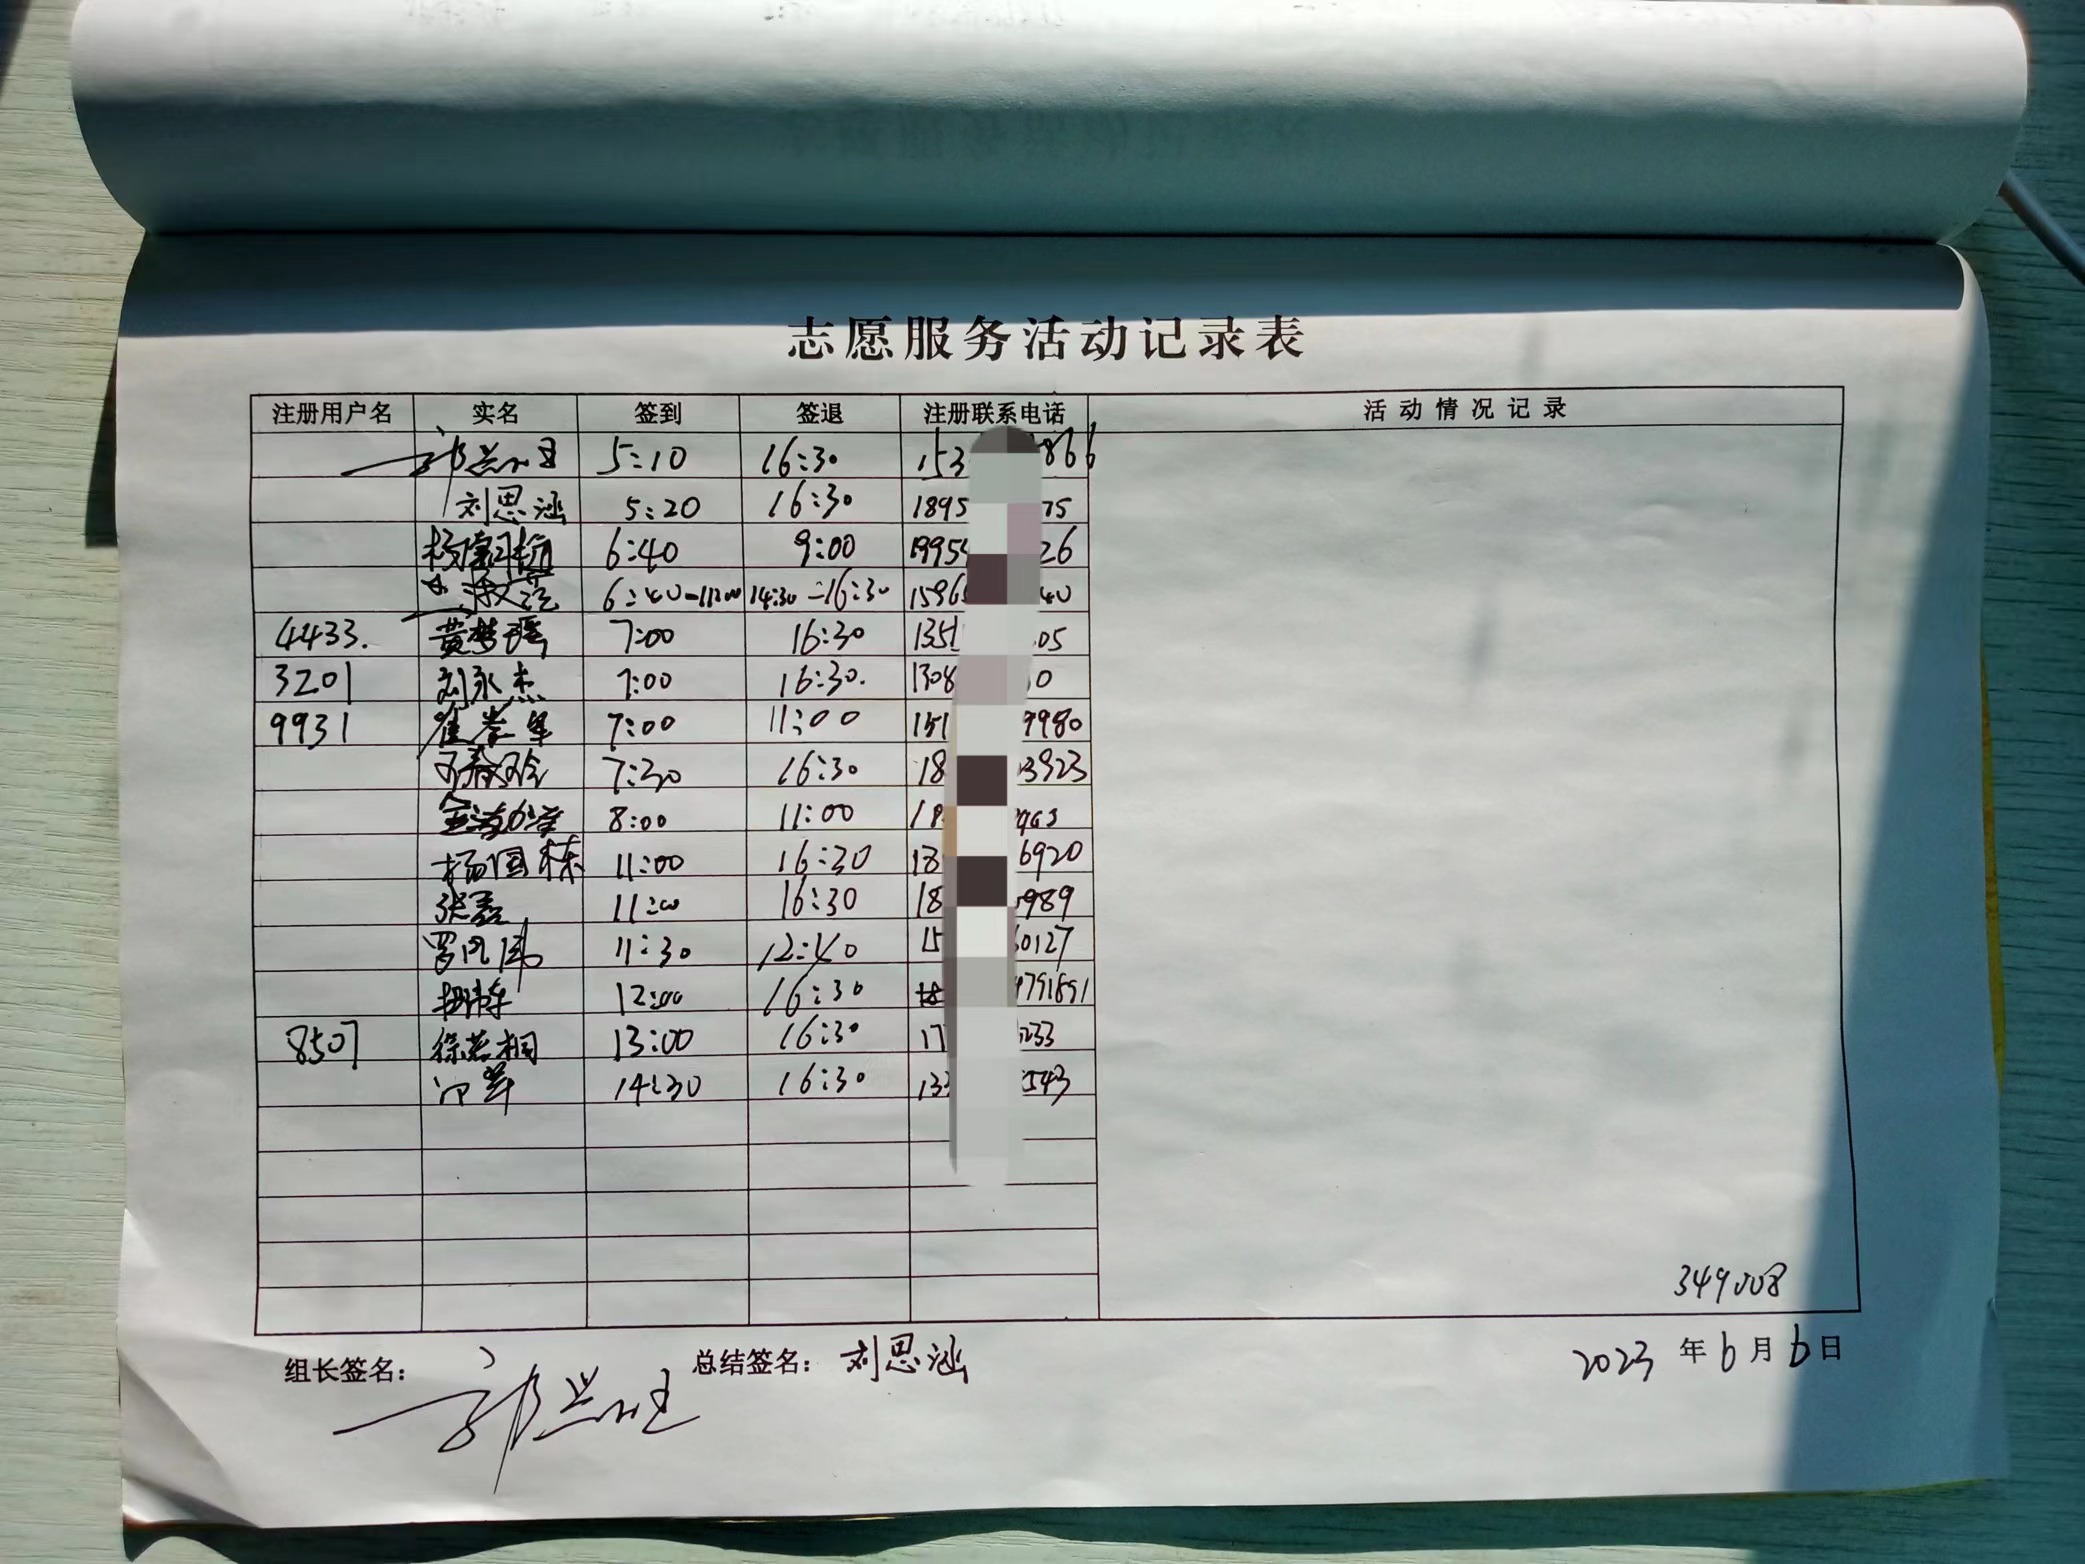 志愿服务活动记录表
注册用户名 实名 签到 签退 注册联系电话 活动情况记录
郭兴旺 5:10 16:30 153 866
刘思涵 5:20 16:30 1895 75
6:40 9:00 19954 26
6:40-11:00 14:30-16:30 1596 40
4433. 黄梦瑶 7:00 16:30 1351 05
3201 刘永杰 7:00 16:30. 1308 0
9931 7:00 11:00 151 9980
7:30 16:30 18 3923
8:00 11:00 18 963
杨国栋 11:00 16:30 18 6920
张磊 11:00 16:30 18 989
11:30 12:40 15 0127
12:00 16:30 18 791891
8507 徐若桐 13:00 16:30 17 233
14:30 16:30 133 543
349008
组长签名: 郭兴旺 总结签名: 刘思涵 2023 年 6 月 6 日